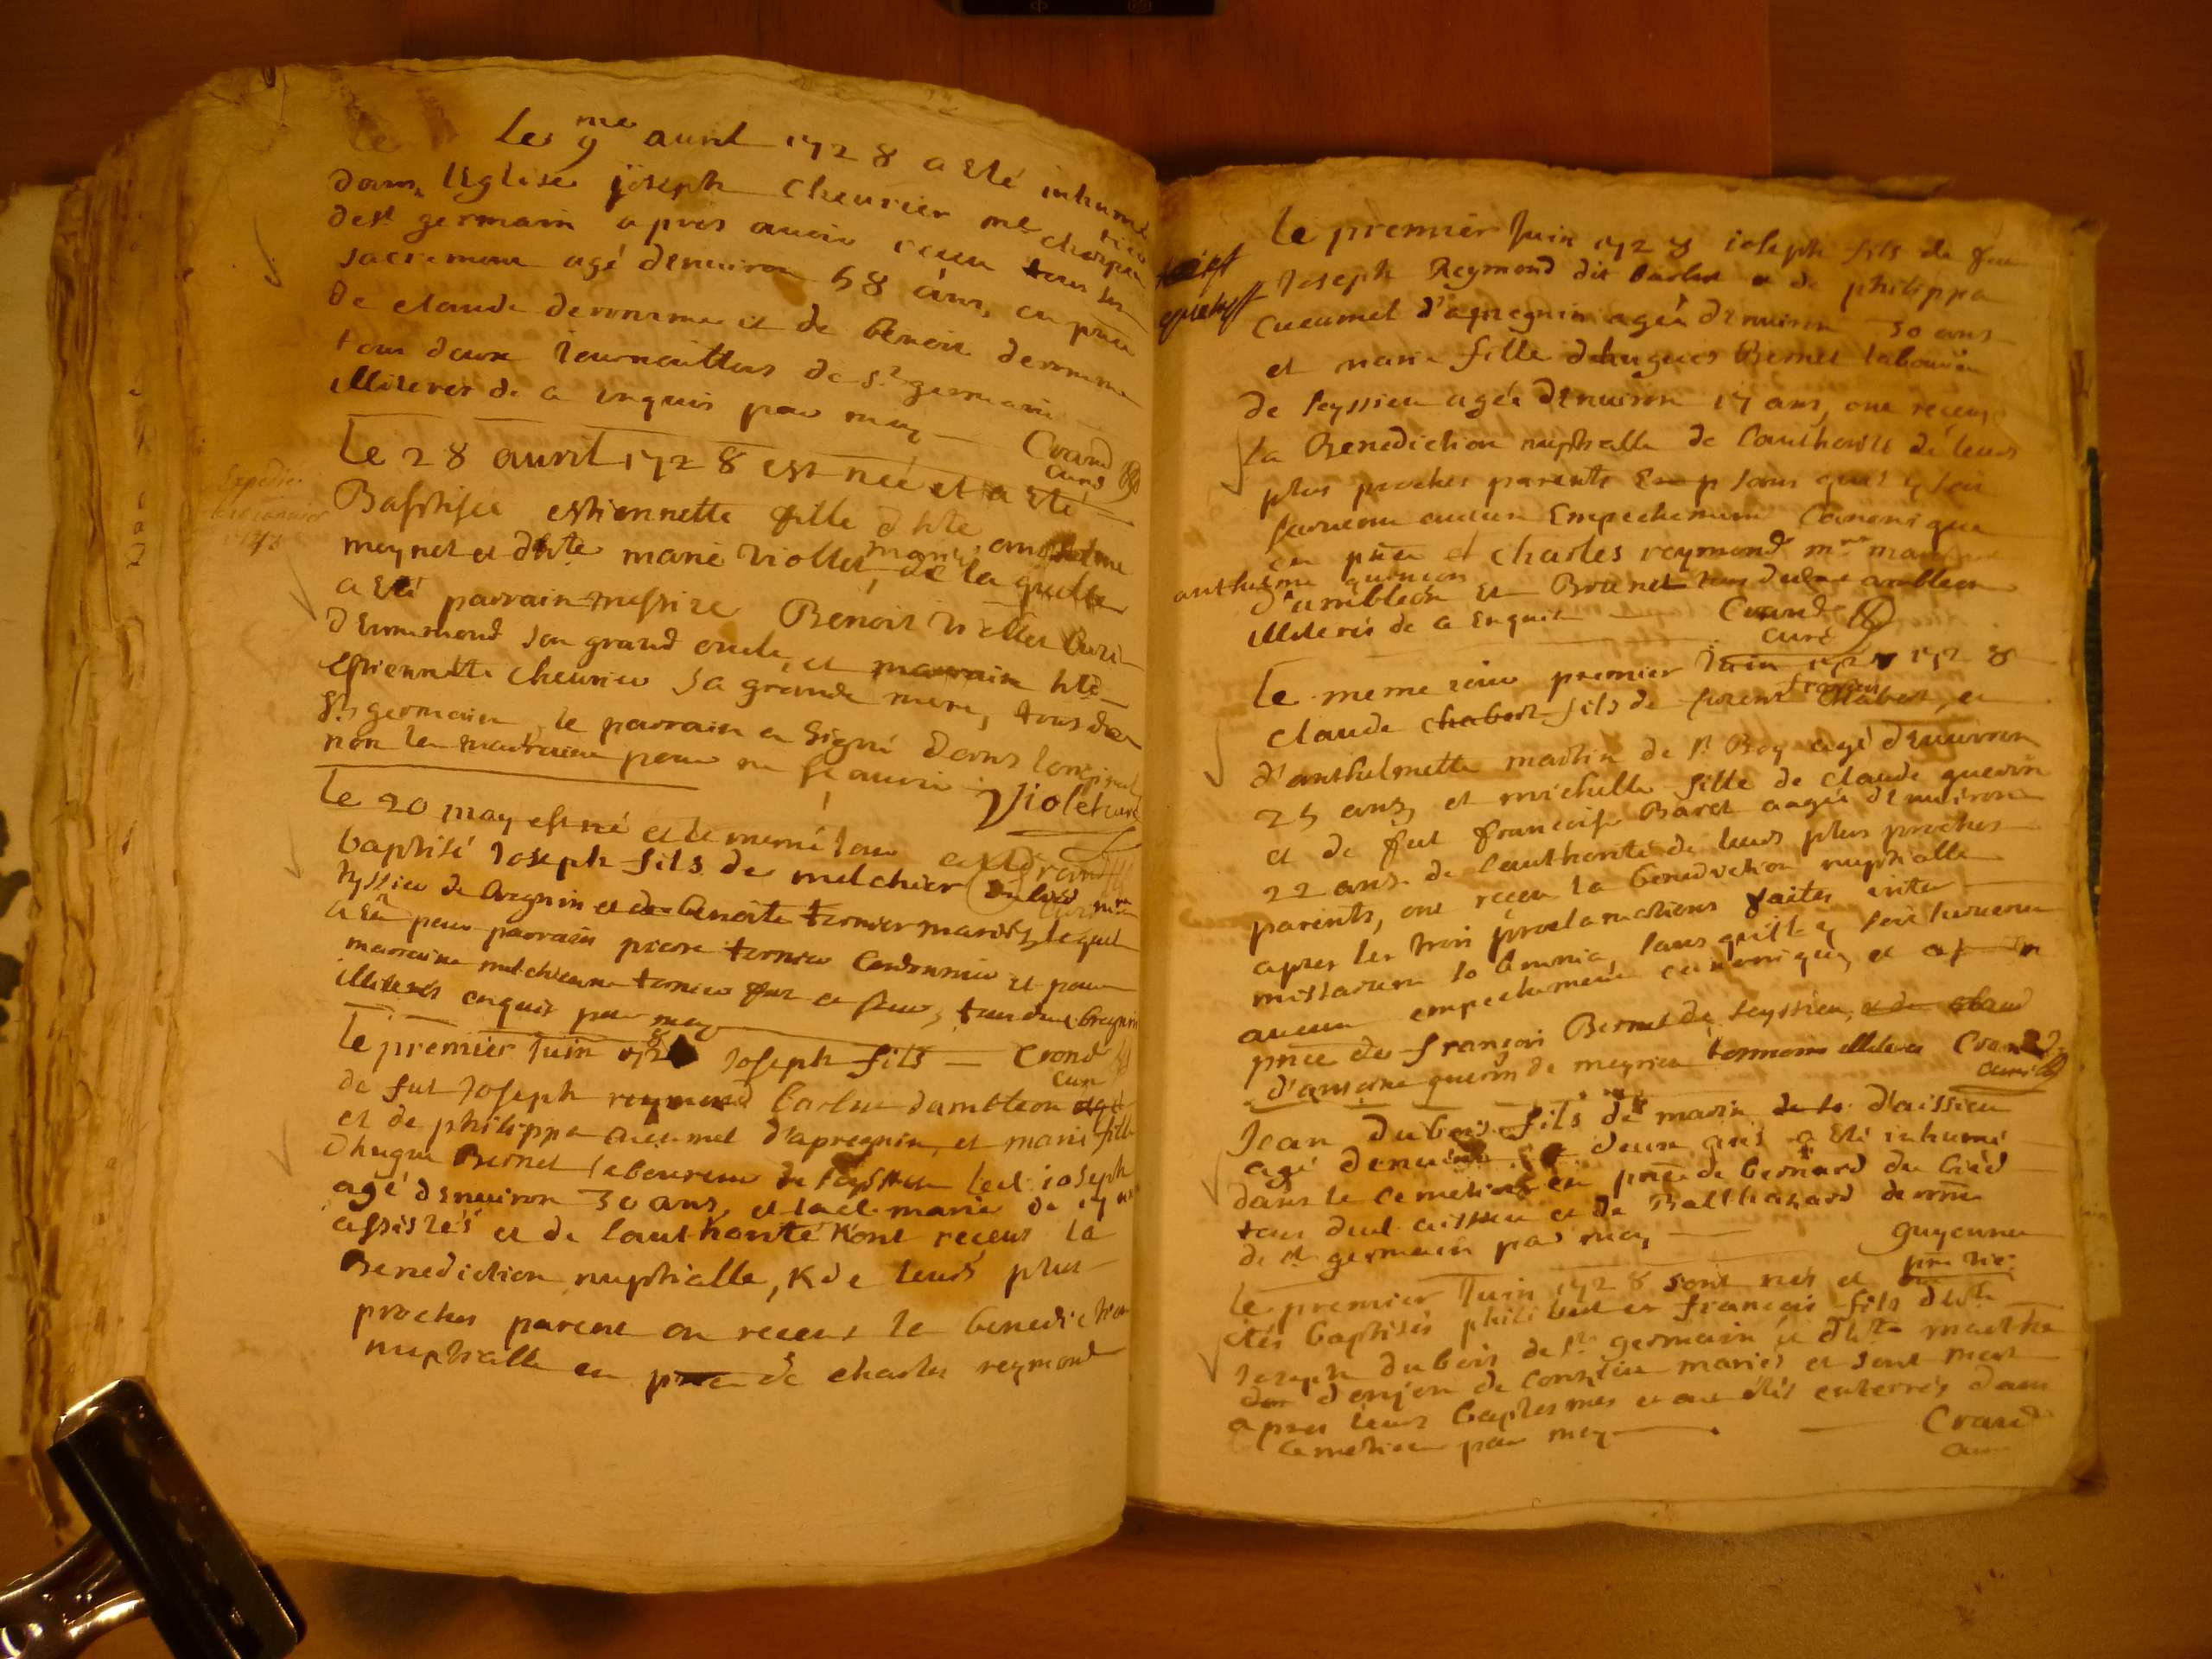 le Les 9me auril 1728 a Eté inhumé
dans lEglise joseph cheurier me charpentier
de st germain apres auoir receu tous les
sacremens agé denuiron 58 ans, en pnce
de claude deronime et de benoit deronime
tous deux Iournailliers de st germain
illiterez de a enquis par moy Crand
curé
Le 28 auril 1728 est née et a Eté
Baptisée estiennette fille d hte
meynet et dhte marie Viollet, mariés, de la
a eté parrain messire Benoit Viollet Curé
son grand oncle, et marraine hte
Estiennette cheurier sa grande mere, tous de
St germain, le parrain a signé dans loriginal
non la marraine pour ne scauoir Violet curé
Expedié
Le 20 may est né et le meme jour a eté
baptisé Joseph fils de melchier
de Bregnin et de benoite ternier mariés, lequel
a eu pour parrain pierre ternier Cordonnier et pour
marraine melchionne ternier sa seur, tous dud Bregnin
illiterés enquis par moy Crand
curé
Le premier Juin 1728 Joseph fils
de fut Joseph reymond barlet dambleon
et de philippa cucumel d'apregnin, et marie fille
dhugue Bernet laboureur de Leyssieu led. ioseph
agé denuiron 30 ans, et lad. marie de 17 ans
assistés et de lauthorité K ont receus la
Benediction nuptialle, K de leurs plus
proches parent on receus la benediction
nuptialle en pnce de charles reymond
Le premier Juin 1728 ioseph fils de feu
Joseph Reymond dit barlet et de philippa
cucumel d'apregnin agée denuiron 30 ans
et marie fille dhugues Bernet laboureur
de leyssieu agée denuiron 17 ans, ont receus
la Benediction nuptialle de l'authorité de leurs
plus proches parents sans quil y soit
suruenu aucun Empechement Canonique
en pnce de charles reymond
anthelme guincon
d'ambleon et Brunet tous deux ambleon
illiterés de a Enquis Crand
curé
Le meme iour premier Juin 1728
claude chabert fils de françois chabert, et
d'anthelmette martin de st Boy agé denuiron
25 ans, et michelle fille de claude guerin
et de fut françoise Baret aagée denuiron
22 ans. de l'authorité de leurs plus proches
parents, ont receu la benediction nuptialle
apres les trois proclamations faites inter
missarum solemnia, sans quil y soit suruenu
aucun empechement canonique, et
pnce de françois Bernet de leyssieu,
d'antoine guerin de meyrieu illiteres Crand
curé
Jean dubois fils de marin d'aissieu
agé denuiron deux ans a Eté inhumé
dans le cemetiere en pnce de bernard du bied
tous dud. aissieu et de Balthazard deronime
de st germain par moy guyenner
Le premier Juin 1728 sont nés et
étés baptisés philibert et françois fils dhte
Joseph dubois de St germain et dhte marthe
donjon de Conzieu mariés et sont mort
apres leurs baptesmes et ont étés enterrés dans
le cemetiere par moy Crand
curé